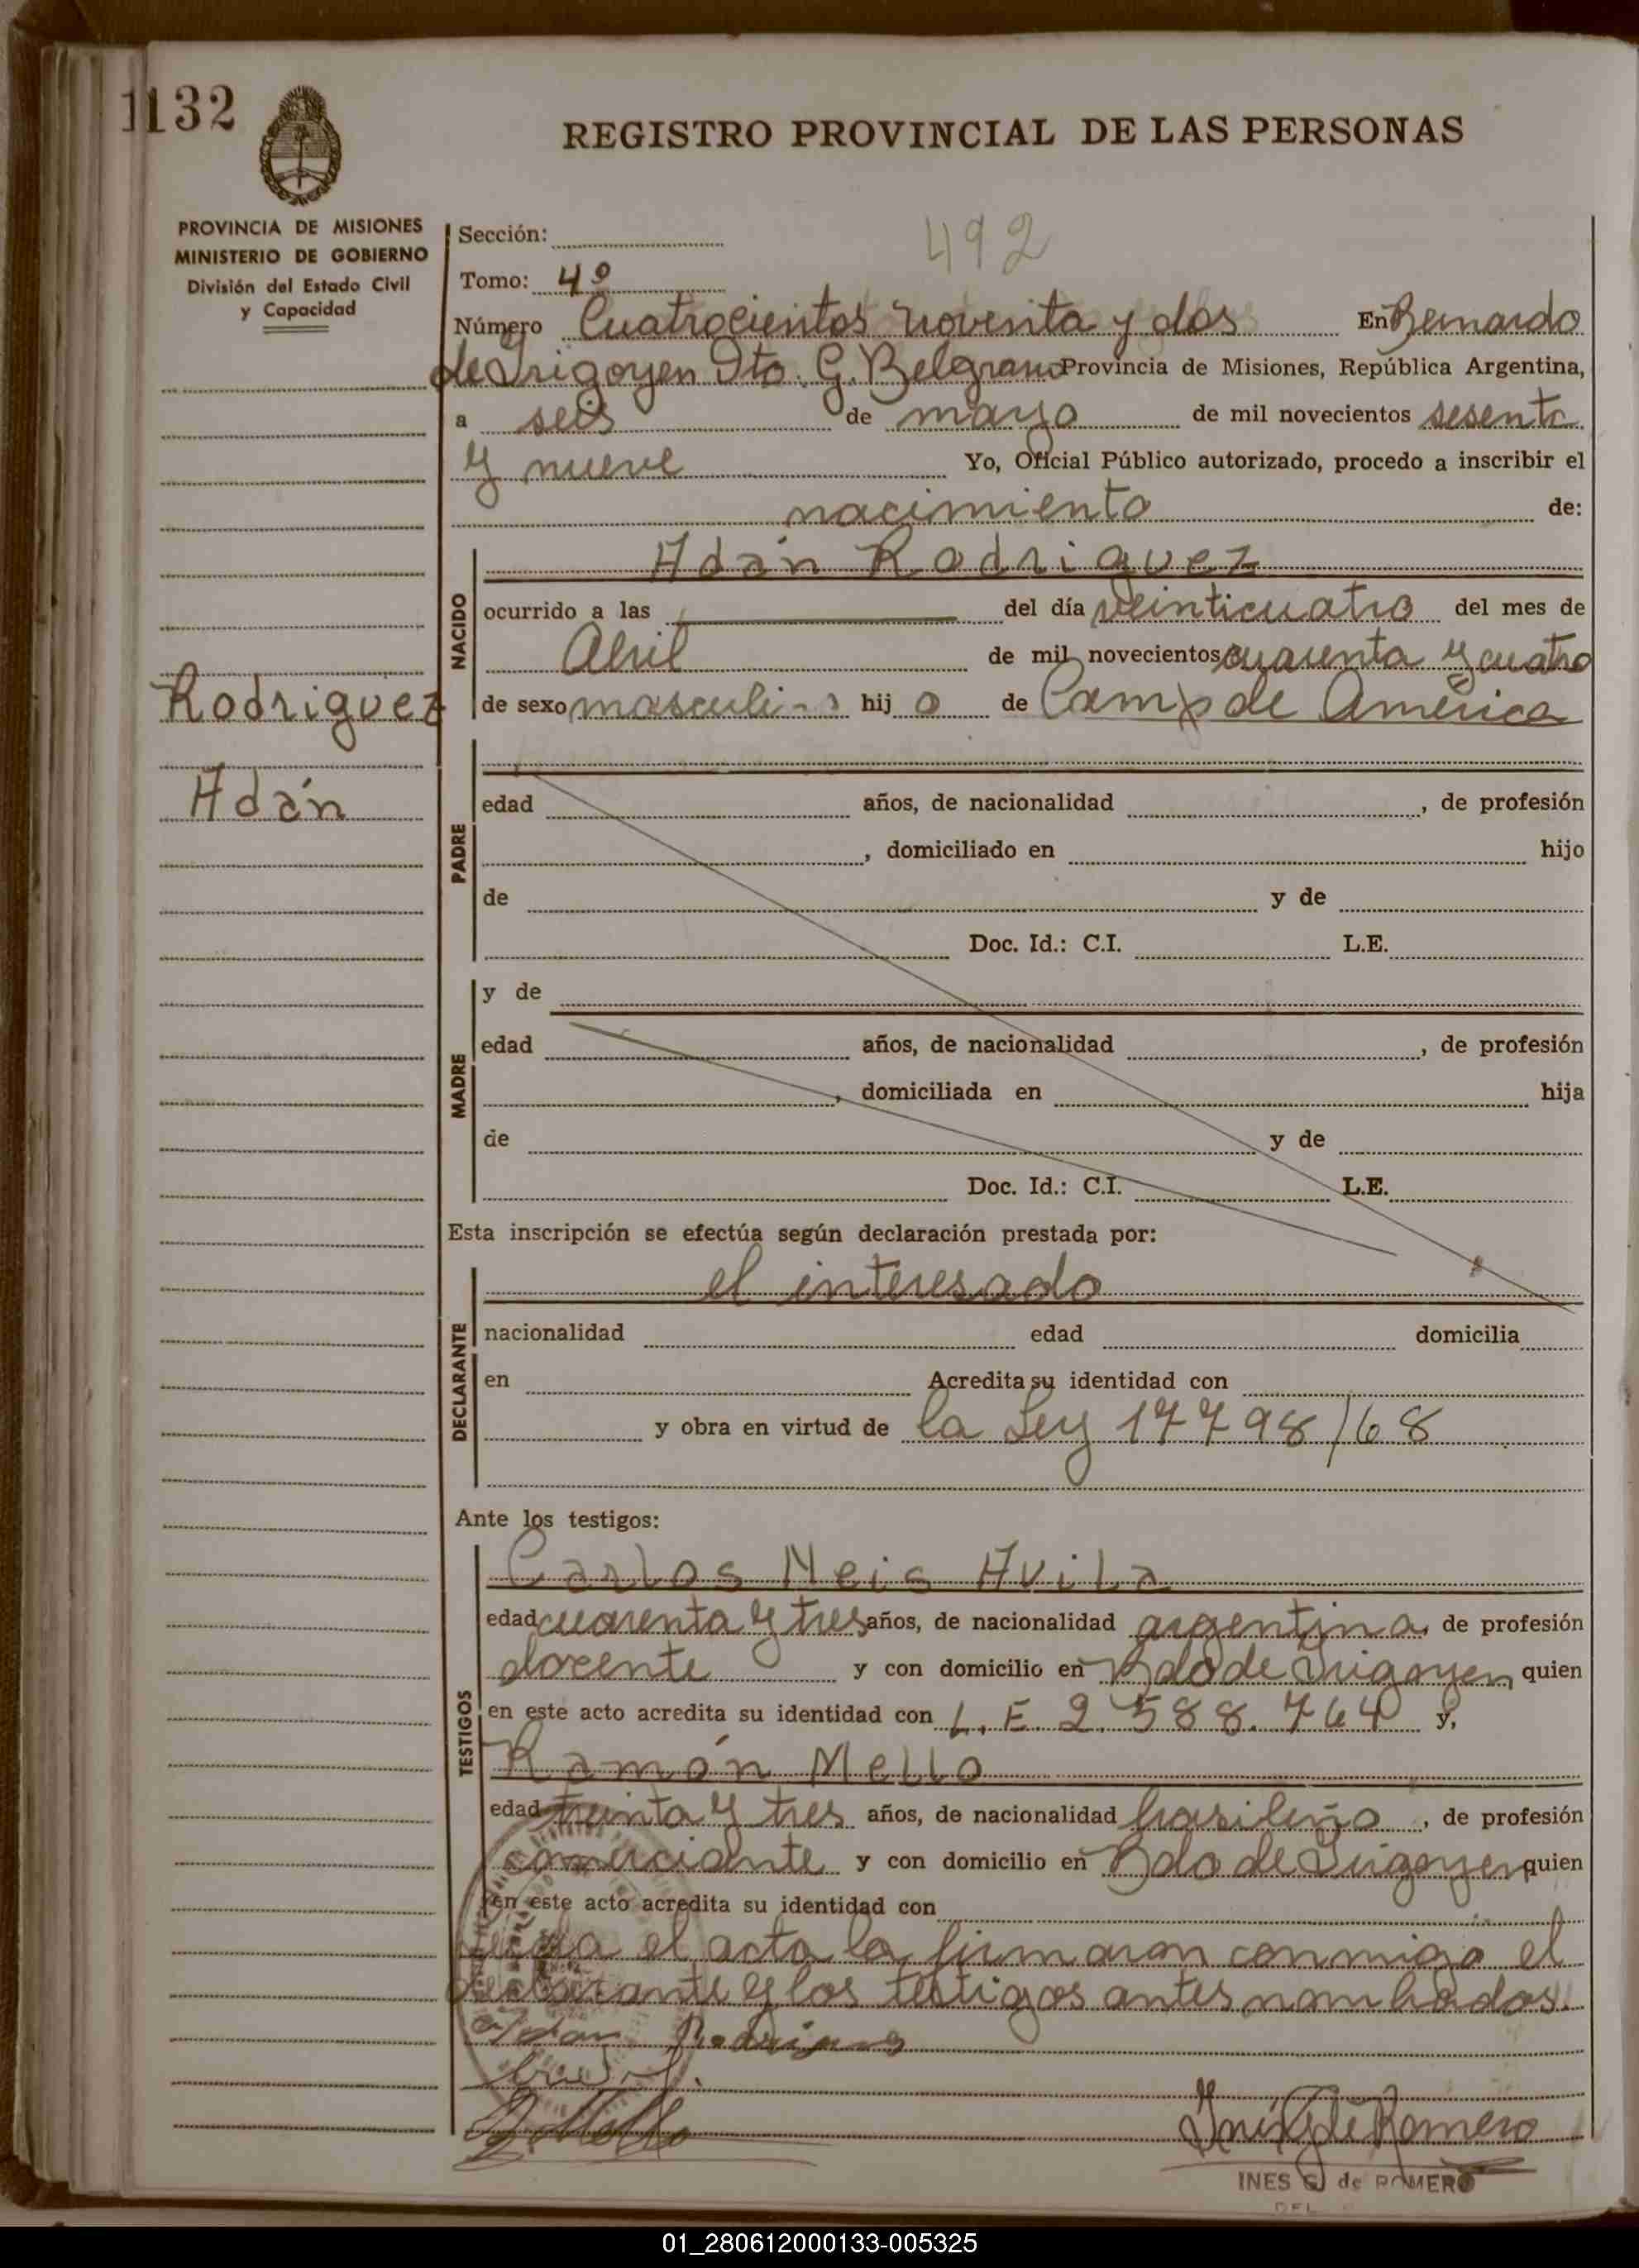 1132
REGISTRO PROVINCIAL DE LAS PERSONAS
PROVINCIA DE MISIONES
MINISTERIO DE GOBIERNO
División del Estado Civil
y Capacidad
Sección:
492
Tomo: 4º
Número Cuatrocientos noventa y dos En Bernardo
de Irigoyen Dto. G. Belgrano Provincia de Misiones, República Argentina,
a seis de mayo de mil novecientos sesenta
y nueve Yo, Oficial Público autorizado, procedo a inscribir el
nacimiento de:
Rodriguez
Adán
NACIDO
Adán Rodriguez
ocurrido a las del día veinticuatro del mes de
Abril de mil novecientos cuarenta y cuatro
de sexo masculino hijo de Camp de América
PADRE
edad años, de nacionalidad , de profesión
, domiciliado en hijo
de y de
Doc. Id.: C.I. L.E.
MADRE
y de
edad años, de nacionalidad , de profesión
, domiciliada en hija
de y de
Doc. Id.: C.I. L.E.
Esta inscripción se efectúa según declaración prestada por:
DECLARANTE
el interesado
nacionalidad edad domicilia
en Acredita su identidad con
y obra en virtud de la Ley 17798/68
Ante los testigos:
TESTIGOS
Carlos Neis Avila
edad cuarenta y tres años, de nacionalidad argentina, de profesión
docente y con domicilio en Bdo de Irigoyen, quien
en este acto acredita su identidad con L.E 2.588.764 y,
Ramón Mello
edad treinta y tres años, de nacionalidad brasileño, de profesión
comerciante y con domicilio en Bdo de Irigoyen quien
en este acto acredita su identidad con
el acta la firmaron conmigo el
declarante y los testigos antes nombrados.
Adan Rodrigues
Mello
Inés G de Romero
INES G. de ROMERO
DEL
01_280612000133-005325